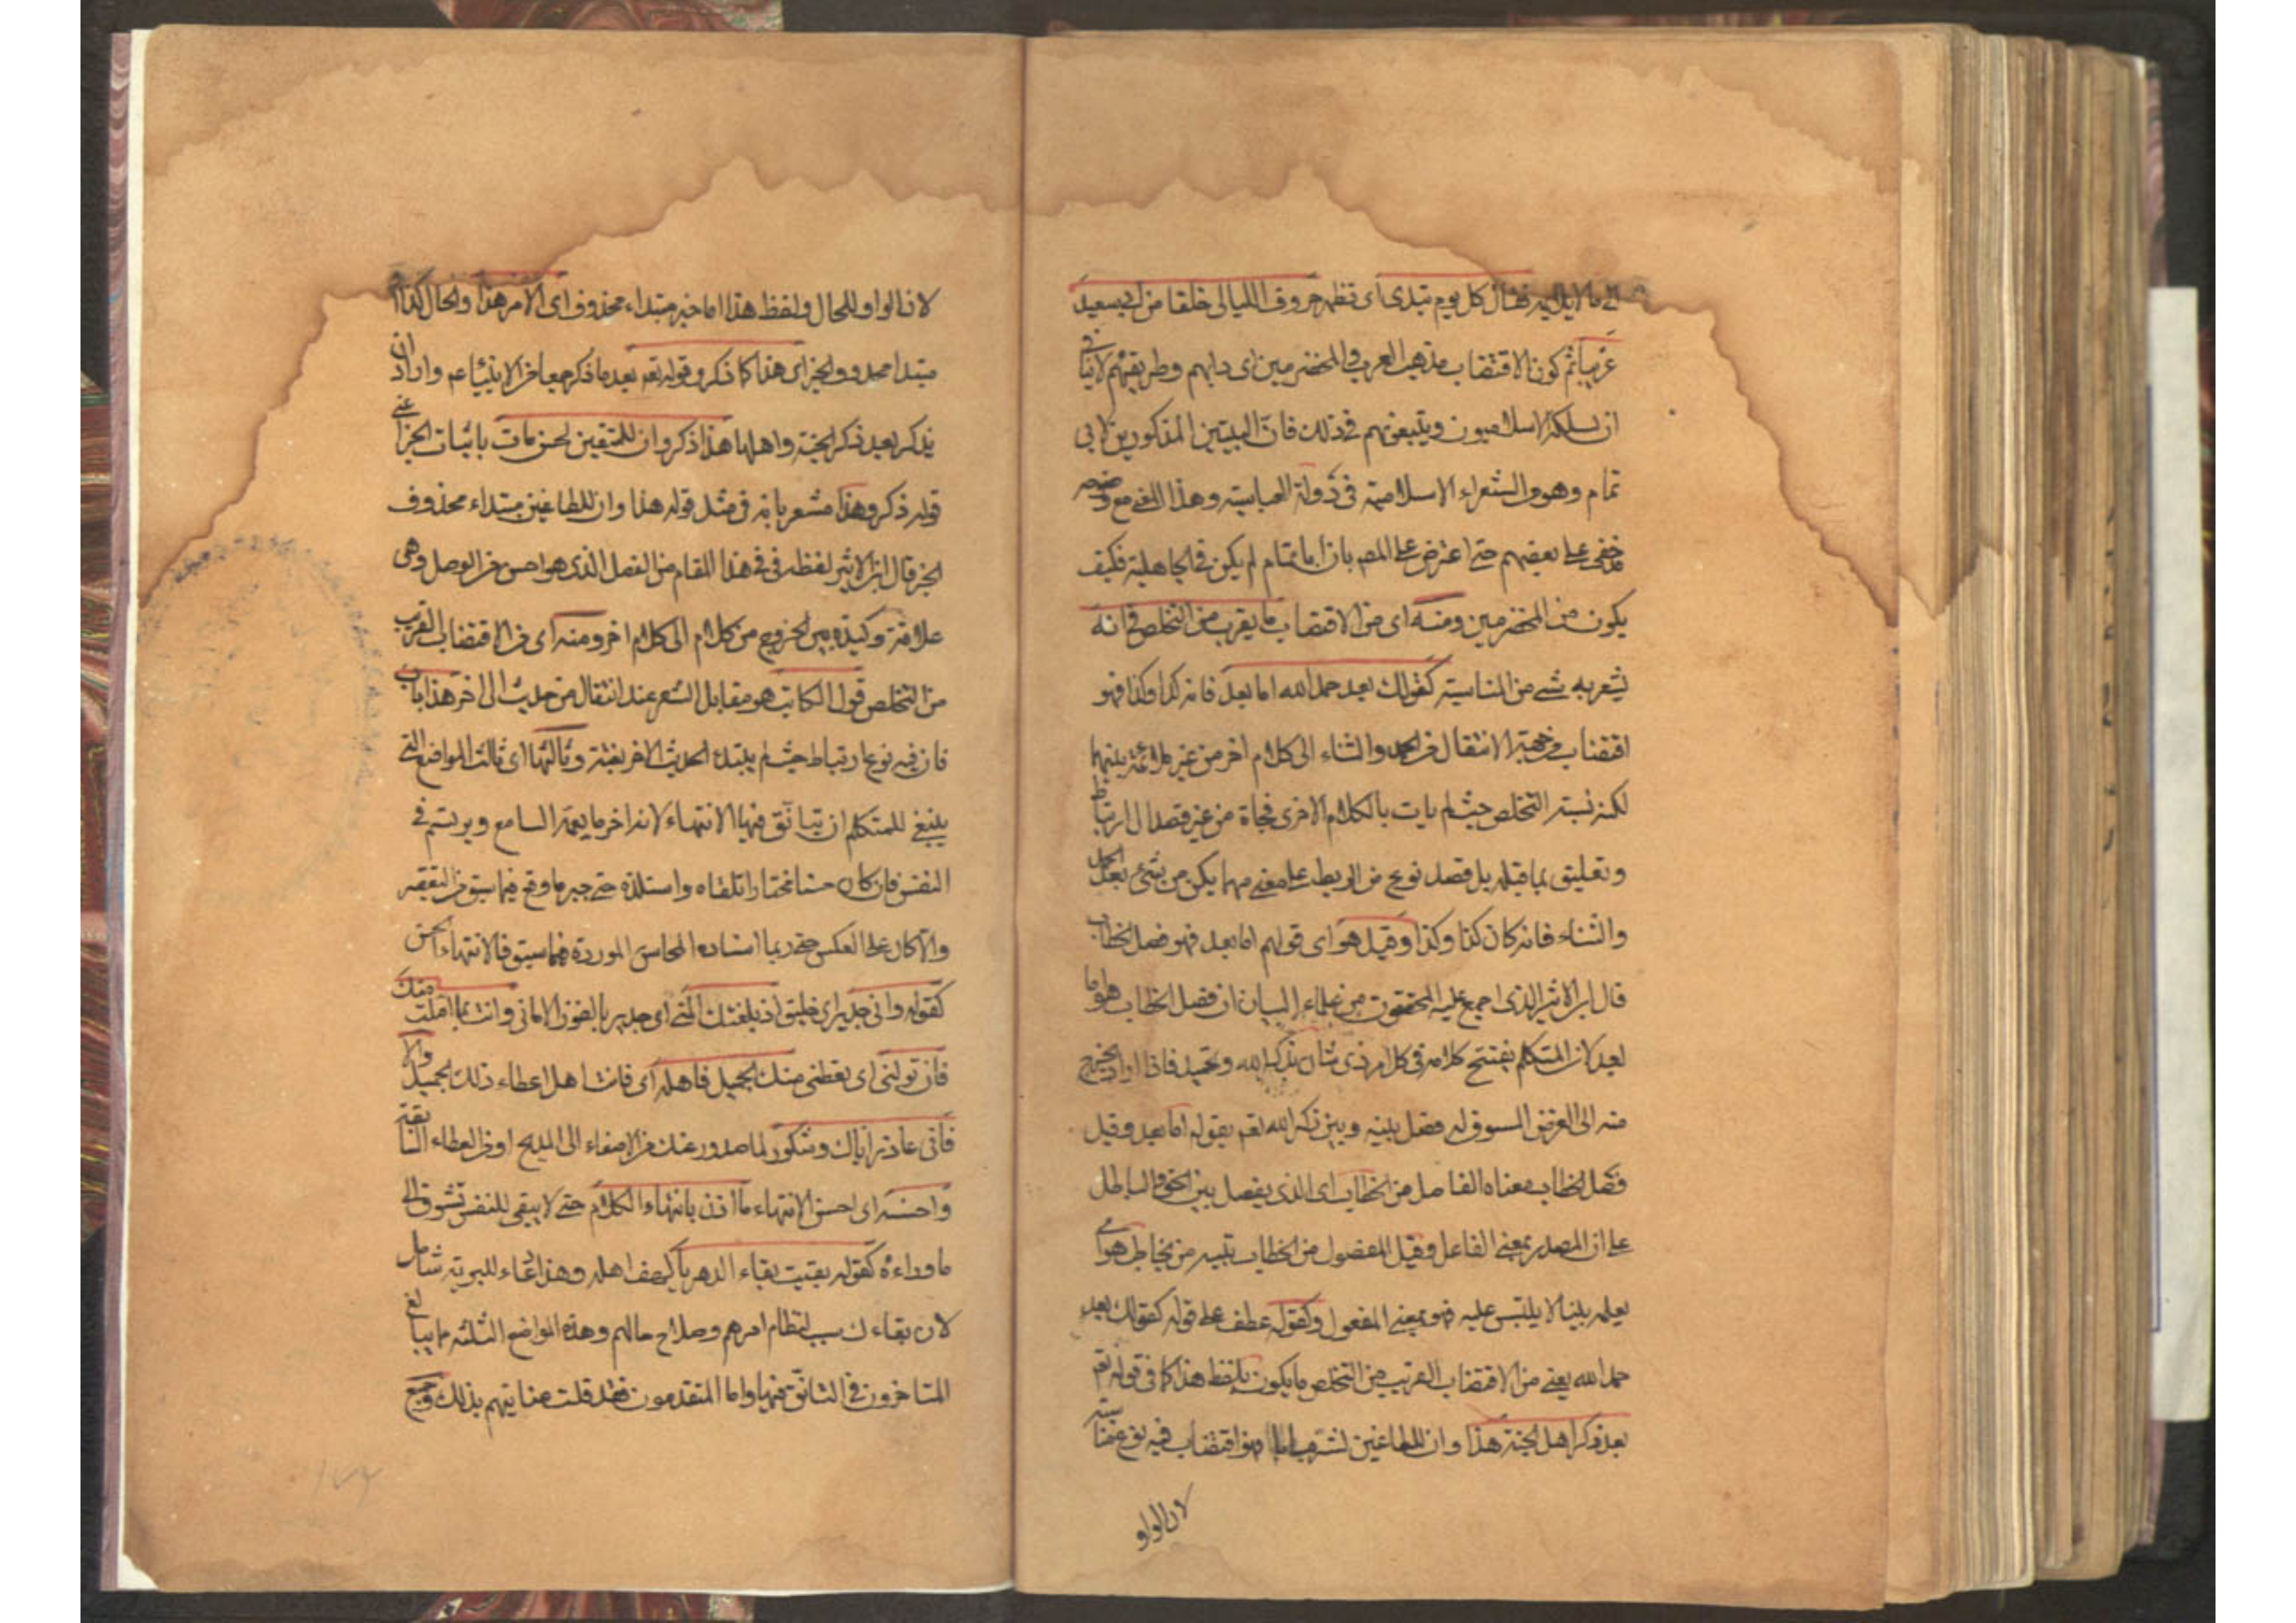 الى ما لا يلايمه فقال كل يوم تبدى اى تظهر صروف الليالى خلقا من ابى سعيد
غريبا ثم كون الاقتضاب مذهب العرب والمخضرمين اى دابهم وطريقهم لا ينافى
ان يسلكه الاسلاميون ويتبعونهم فى ذلك فان البيتين المذكورين لابى
تمام وهو من الشعراء الاسلامية فى دولة العباسية وهذا المعنى مع وضوحه
قد خفى على بعضهم حتى اعترض على المصر بان ابا تمام لم يكن فى الجاهلية فكيف
يكون من المخضرمين ومنه اى من الاقتضاب ما يقرب من التخلص فى انه
يشعر به شئ من المناسبة كقولك بعد حمد الله اما بعد فانه كذا وكذا فهو
اقتضاب من جهة الانتقال من الحمد والثناء الى كلام اخر من غير ملائمة بينهما
لكنه يشبه التخلص حيث لم يات بالكلام الاخرى فجاة من غير قصد الى ارتباط
وتعليق بما قبله بل قصد نوع من الربط على معنى مهما يكن من شئ بعد الحمد
والثناء فانه كان كذا وكذا وقيل هو اى قولهم اما بعد فهو فصل الخطاب
قال ابن الاثير الذى اجمع عليه المحققون من علماء البيان ان فصل الخطاب هو اما
بعد لان المتكلم يفتتح كلامه فى كل امر ذى شان بذكر الله وتحميد فاذا اراد ان يخرج
منه الى الغرض المسوق له فصل بينه وبين ذكر الله تعم بقوله اما بعد وقيل
فصل الخطاب معناه الفاصل من الخطاب اى الذى يفصل بين الحق والباطل
على ان المصدر بمعنى الفاعل وقيل المفصول من الخطاب تبينه من يخاطب هو اى
يعلمه بينا لا يلتبس عليه فهو بمعنى المفعول وكقوله عطف على قوله كقولك بعد
حمد الله يعنى من الاقتضاب القريب من التخلص ما يكون بلفظ هذا كما فى قوله تعم
بعد ذكر اهل الجنة هذا وان للطاغين لشر ماب فهو اقتضاب فيه نوع مناسبة
لان الواو
لان الواو للحال ولفظ هذا اما خبر مبتداء محذوف اى الامر هذا والحال كذا او
مبتدا محذوف الخبر اى هذا كما ذكر وقوله تعم بعد ما ذكر جمعا من الانبياء عم واراد ان
يذكر بعد ذكر الجنة واهلها هذا ذكر وان للمتقين لحسن ماب باثبات الخبر اعنى
قوله ذكر وهذا مشعر بانه فى مثل قوله هذا وان للطاغين مبتداء محذوف
الخبر قال ابن الاثير لفظ هذا فى هذا المقام من الفصل الذى هو احسن من الوصل وهى
علاقة وكيدة بين الخروج من كلام الى كلام اخر ومنه اى من الاقتضاب القريب
من التخلص قول الكاتب هو مقابل الشعر عند انتقال من حديث الى اخر هذا باب
فان فيه نوع ارتباط حيث لم يبتدء الحديث الاخر بغتة وثالثها اى ثالث المواضع التى
ينبغى للمتكلم ان يتانق فيها الانتهاء لانه اخر ما يعيه السامع ويرتسم فى
النفس فان كان حسنا مختارا تلقاه واستلذه حتى جبر ما وقع فيما سبق من التقصير
والا كان على العكس حتى ربما انساه المحاسن الموردة فيما سبق فالانتهاء الحسن
كقوله وانى جدير اى خليق اذ بلغتك المنى اى جدير بالفوز الامانى وانت بما املت منك
فان تولنى اى تعطنى منك الجميل فاهله اى فانت اهل اعطاء ذلك الجميل والا
فانى عاذر اياك وشكور لما صدر عنك من الاصغاء الى المديح او من العطاء السابقة
واحسنه اى احسن الانتهاء ما اذن بانتهاء الكلام حتى لا يبقى للنفس تشوق الى
ما وراءه كقوله بقيت بقاء الدهر يا كهف اهله وهذا دعاء للبرية شامل
لان بقاءك سبب لنظام امرهم وصلاح حالهم وهذه المواضع الثلثه مما يبالغ
المتاخرون فى التانق فيها واما المتقدمون فقد قلت عنايتهم بذلك وجميع